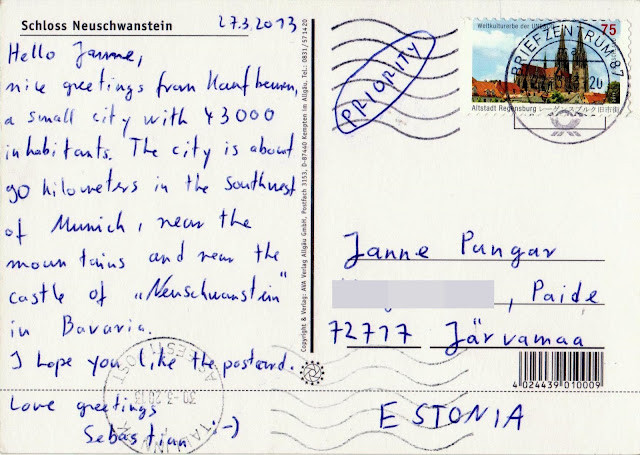 Schloss Neuschwanstein
27.3.2013
Hello Janne,
nice greetings from Kaufbeuren,
a small city with 43000
inhabitants. The city is about
90 kilometers in the southwest
of Munich, near the
mountains and near the
castle of „Neuschwanstein“
in Bavaria.
I hope you like the postcard.
Love greetings
Sebastian :-)
Copyright & Verlag: AVA Verlag Allgäu GmbH, Postfach 3153, D-87440 Kempten im Allgäu, Tel.: 0831/571420
PRIORITY
Weltkulturerbe der UNESCO
75
Altstadt Regensburg レーゲンスブルク旧市街
BRIEFZENTRUM 87
Janne Pungar
, Paide
72717 Järvamaa
ESTONIA
4 024439 010009
EESTI POST
30-3-2013
TALLINN